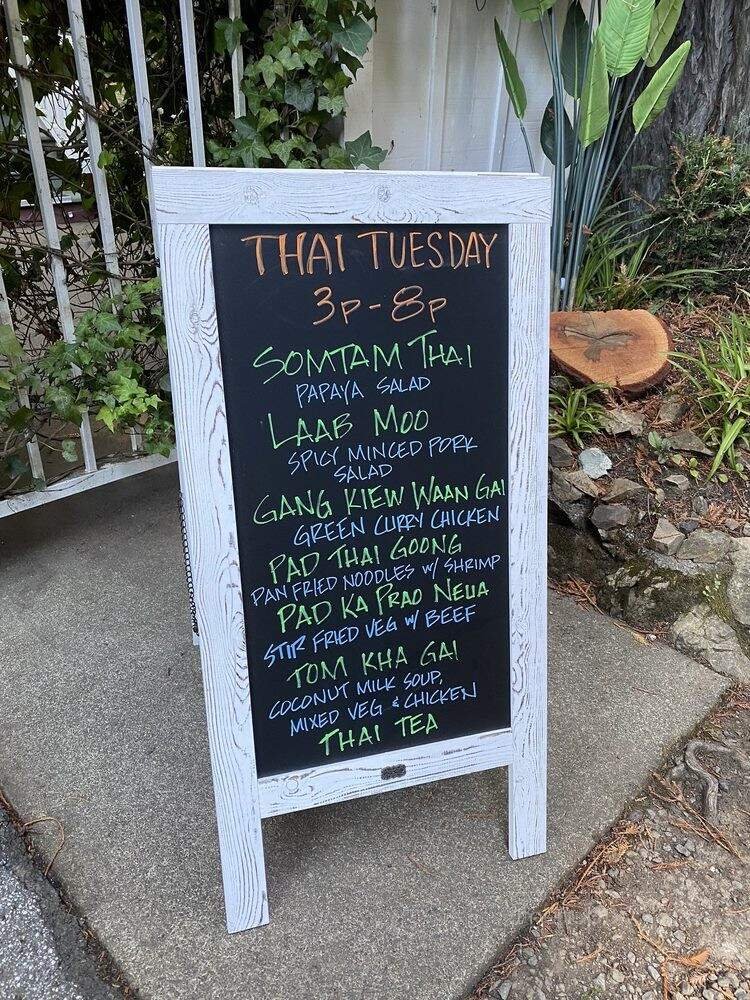 THAI TUESDAY
3P-8P
SOMTAM THAI
PAPAYA SALAD
LAAB MOO
SPICY MINCED PORK
SALAD
GANG KIEW WAAN GAI
GREEN CURRY CHICKEN
PAD THAI GOONG
PAN FRIED NOODLES W/ SHRIMP
PAD KA PRAO NEUA
STIR FRIED VEG W/ BEEF
TOM KHA GAI
COCONUT MILK SOUP,
MIXED VEG & CHICKEN
THAI TEA